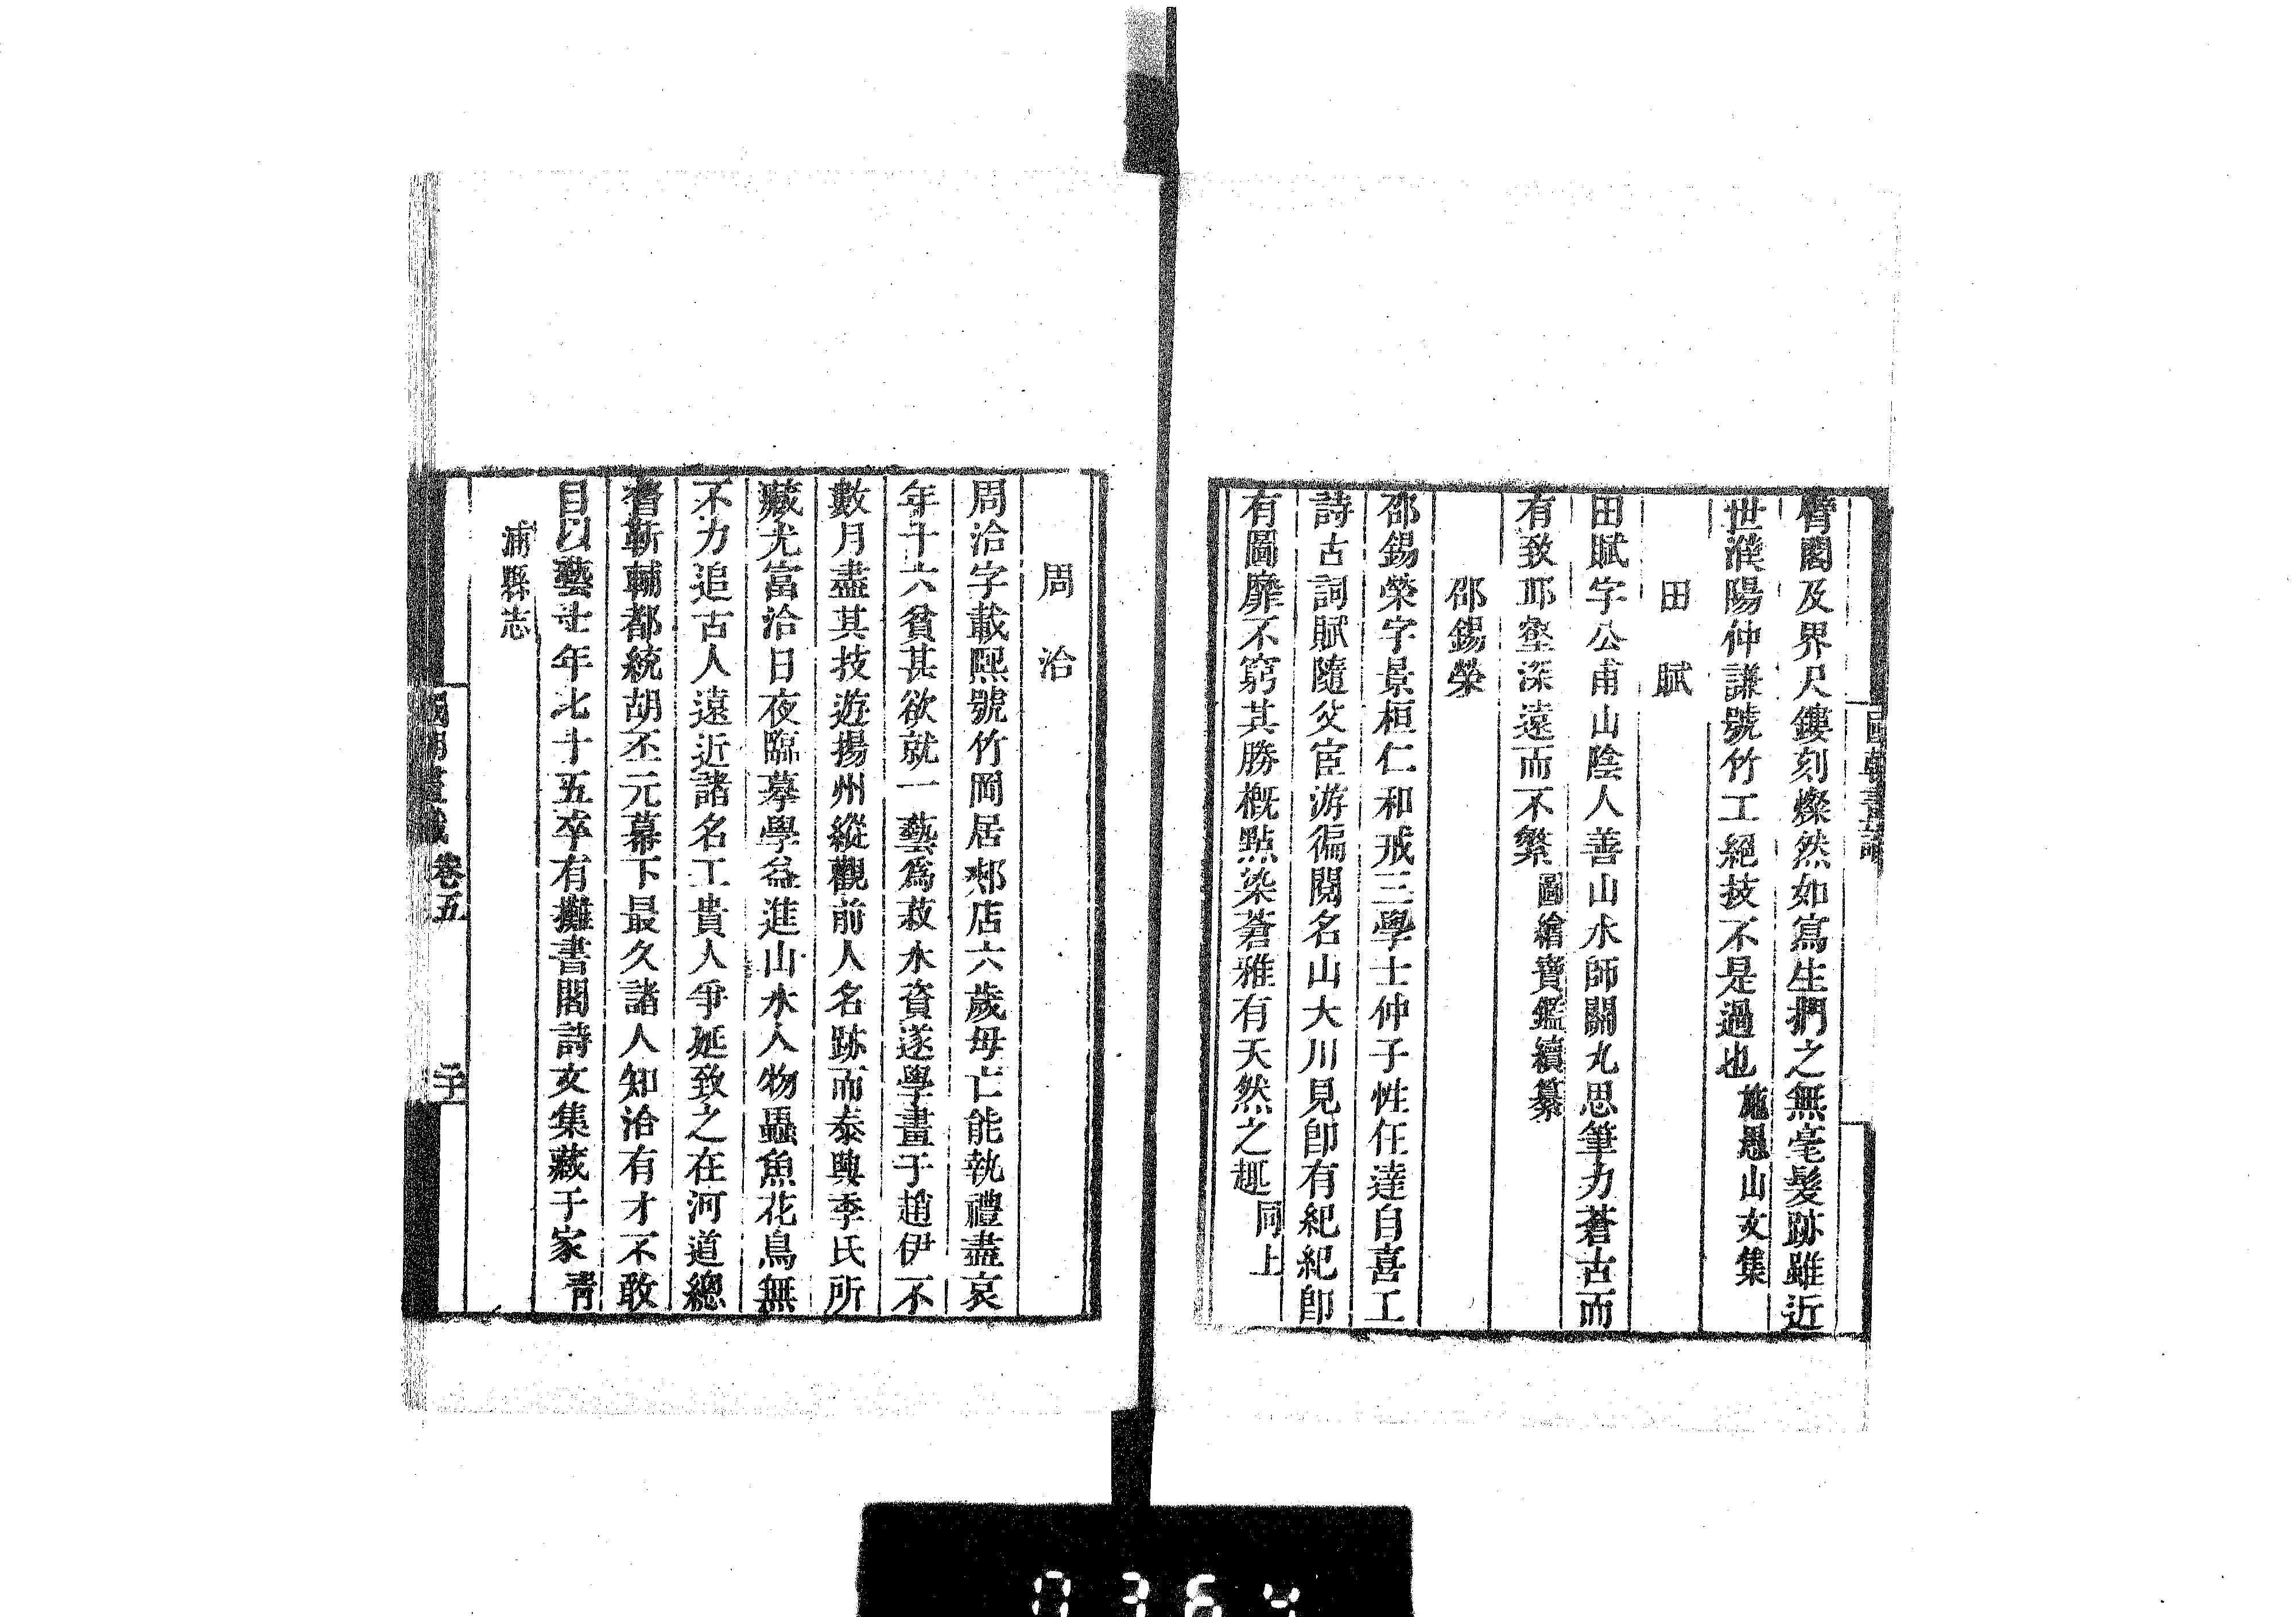 臂閣及界尺鏤刻燦然如寫生捫之無毫髮跡雖近
世濮陽仲謙號竹工絕技不是過也 施愚山文集
田賦
田賦字公甫山陰人善山水師關九思筆力蒼古而
有致邱壑深遠而不繁 圖繪寶鑑續纂
邵錫榮
邵錫榮字景桓仁和戒三學士仲子性任達自喜工
詩古詞賦隨父宦游徧閱名山大川見卽有紀紀卽
有圖靡不窮其勝槪點染蒼雅有天然之趣 同上
周洽
周洽字載熙號竹岡居郟店六歲母亡能執禮盡哀
年十六貧甚欲就一藝爲菽水資遂學畫于趙伊不
數月盡其技遊揚州縱觀前人名跡而泰興季氏所
藏尤富洽日夜臨摹學益進山水人物蟲魚花鳥無
不力追古人遠近諸名工貴人爭延致之在河道總
督靳輔都統胡丕元幕下最久諸人知洽有才不敢
目以藝士年七十五卒有攤書閣詩文集藏于家 靑
浦縣志
國朝畫識 卷五
0364